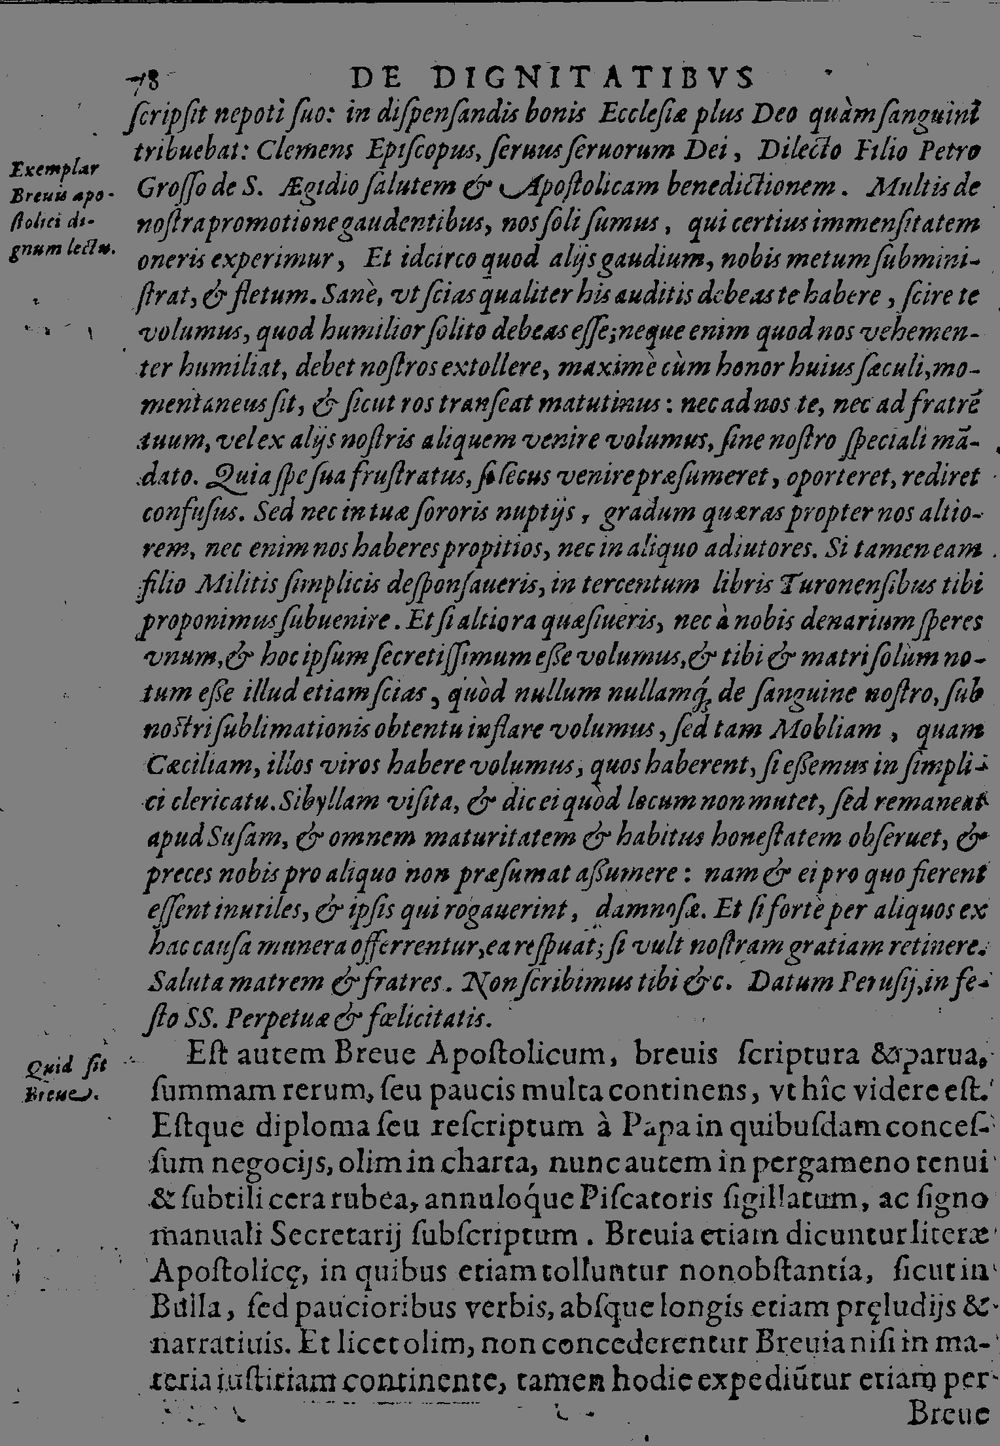 78 DE DIGNITATIBVS
ſcripſit nepoti ſuo: in diſpenſandis bonis Eccleſiæ plus Deo quàm ſanguini
tribuebat: Clemens Epiſcopus, ſeruus ſeruorum Dei, Dilecto Filio Petro
Groſſo de S. Ægidio ſalutem & Apoſtolicam benedictionem. Multis de
noſtra promotione gaudentibus, nos ſoli ſumus, qui certius immenſitatem
oneris experimur, Et idcirco quod alijs gaudium, nobis metum ſubmini-
ſtrat, & fletum. Sanè, vt ſcias qualiter his auditis debeas te habere, ſcire te
volumus, quod humilior ſolito debeas eſſe; neque enim quod nos vehemen-
ter humiliat, debet noſtros extollere, maximè cùm honor huius ſæculi, mo-
mentaneus ſit, & ſicut ros tranſeat matutinus: nec ad nos te, nec ad fratrē
tuum, vel ex alijs noſtris aliquem venire volumus, ſine noſtro ſpeciali mā-
dato. Quia ſpe ſua fruſtratus, ſi ſecus venire præſumeret, oporteret, rediret
confuſus. Sed nec in tuæ ſororis nuptijs, gradum quæras propter nos altio-
rem, nec enim nos haberes propitios, nec in aliquo adiutores. Si tamen eam
filio Militis ſimplicis deſponſaueris, in tercentum libris Turonenſibus tibi
proponimus ſubuenire. Et ſi altiora quæſiueris, nec à nobis denarium ſperes
vnum, & hoc ipſum ſecretiſſimum eſſe volumus, & tibi & matri ſolùm no-
tum eſſe illud etiam ſcias, quòd nullum nullamq́; de ſanguine noſtro, ſub
noſtri ſublimationis obtentu inflare volumus, ſed tam Mobliam, quam
Cæciliam, illos viros habere volumus, quos haberent, ſi eſſemus in ſimpli-
ci clericatu. Sibyllam viſita, & dic ei quòd locum non mutet, ſed remaneat
apud Suſam, & omnem maturitatem & habitus honeſtatem obſeruet, &
preces nobis pro aliquo non præſumat aſſumere: nam & ei pro quo fierent
eſſent inutiles, & ipſis qui rogauerint, damnoſæ. Et ſi fortè per aliquos ex
hac cauſa munera offerrentur, ea reſpuat; ſi vult noſtram gratiam retinere.
Saluta matrem & fratres. Non ſcribimus tibi &c. Datum Peruſij, in fe-
ſto SS. Perpetuæ & fœlicitatis.
Exemplar
Breuis apo-
ſtolici di-
gnum lectu.
Eſt autem Breue Apoſtolicum, breuis ſcriptura & parua,
ſummam rerum, ſeu paucis multa continens, vt hîc videre eſt.
Eſtque diploma ſeu reſcriptum à Papa in quibuſdam conceſ-
ſum negocijs, olim in charta, nunc autem in pergameno tenui
& ſubtili cera rubea, annulóque Piſcatoris ſigillatum, ac ſigno
manuali Secretarij ſubſcriptum. Breuia etiam dicuntur literæ
Apoſtolicę, in quibus etiam tolluntur nonobſtantia, ſicut in
Bulla, ſed paucioribus verbis, abſque longis etiam pręludijs &
narratiuis. Et licet olim, non concederentur Breuia niſi in ma-
teria iuſtitiam continente, tamen hodie expediūtur etiam per
Breue
Quid ſit
Breue.